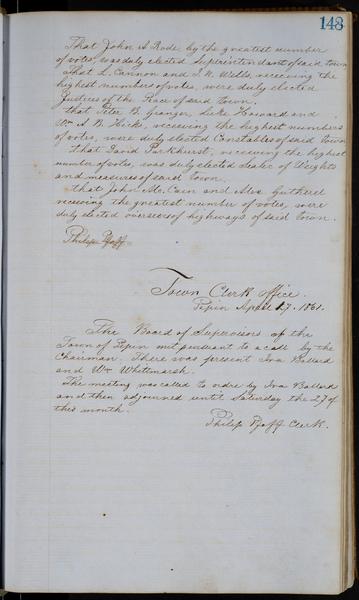 148
That John A Rode by the greatest number
of votes, was duly elected Superintendant of said town
That L. Cannon and J. W. Wells, receiving the
highest numbers of votes, were duly elected
Justices of the Peace of said town.
that Peter B. Granger, Luke Howard and
Wm A B Hicks, receiving the highest numbers
of votes, were duly elected Constables of said town
that David Parkhurst, receiving the highest
number of votes, was duly elected Sealer of Weights
and measures of said town.
that John M. Cain and Alex Gutherel
receiving the greatest number of votes, were
duly elected overseers of highways of said town.
Philip Pfaff
Town Clerk office.
Pepin April 27. 1861.
The Board of Supervisors of the
Town of Pepin met pursuant to a call by the
Chairman. There was present Ira Ballard
and Wm Whittmarsh.
The meeting was called to order by Ira Ballard
and then adjourned until Saturday the 27 of
this month.
Philip Pfaff Clerk.